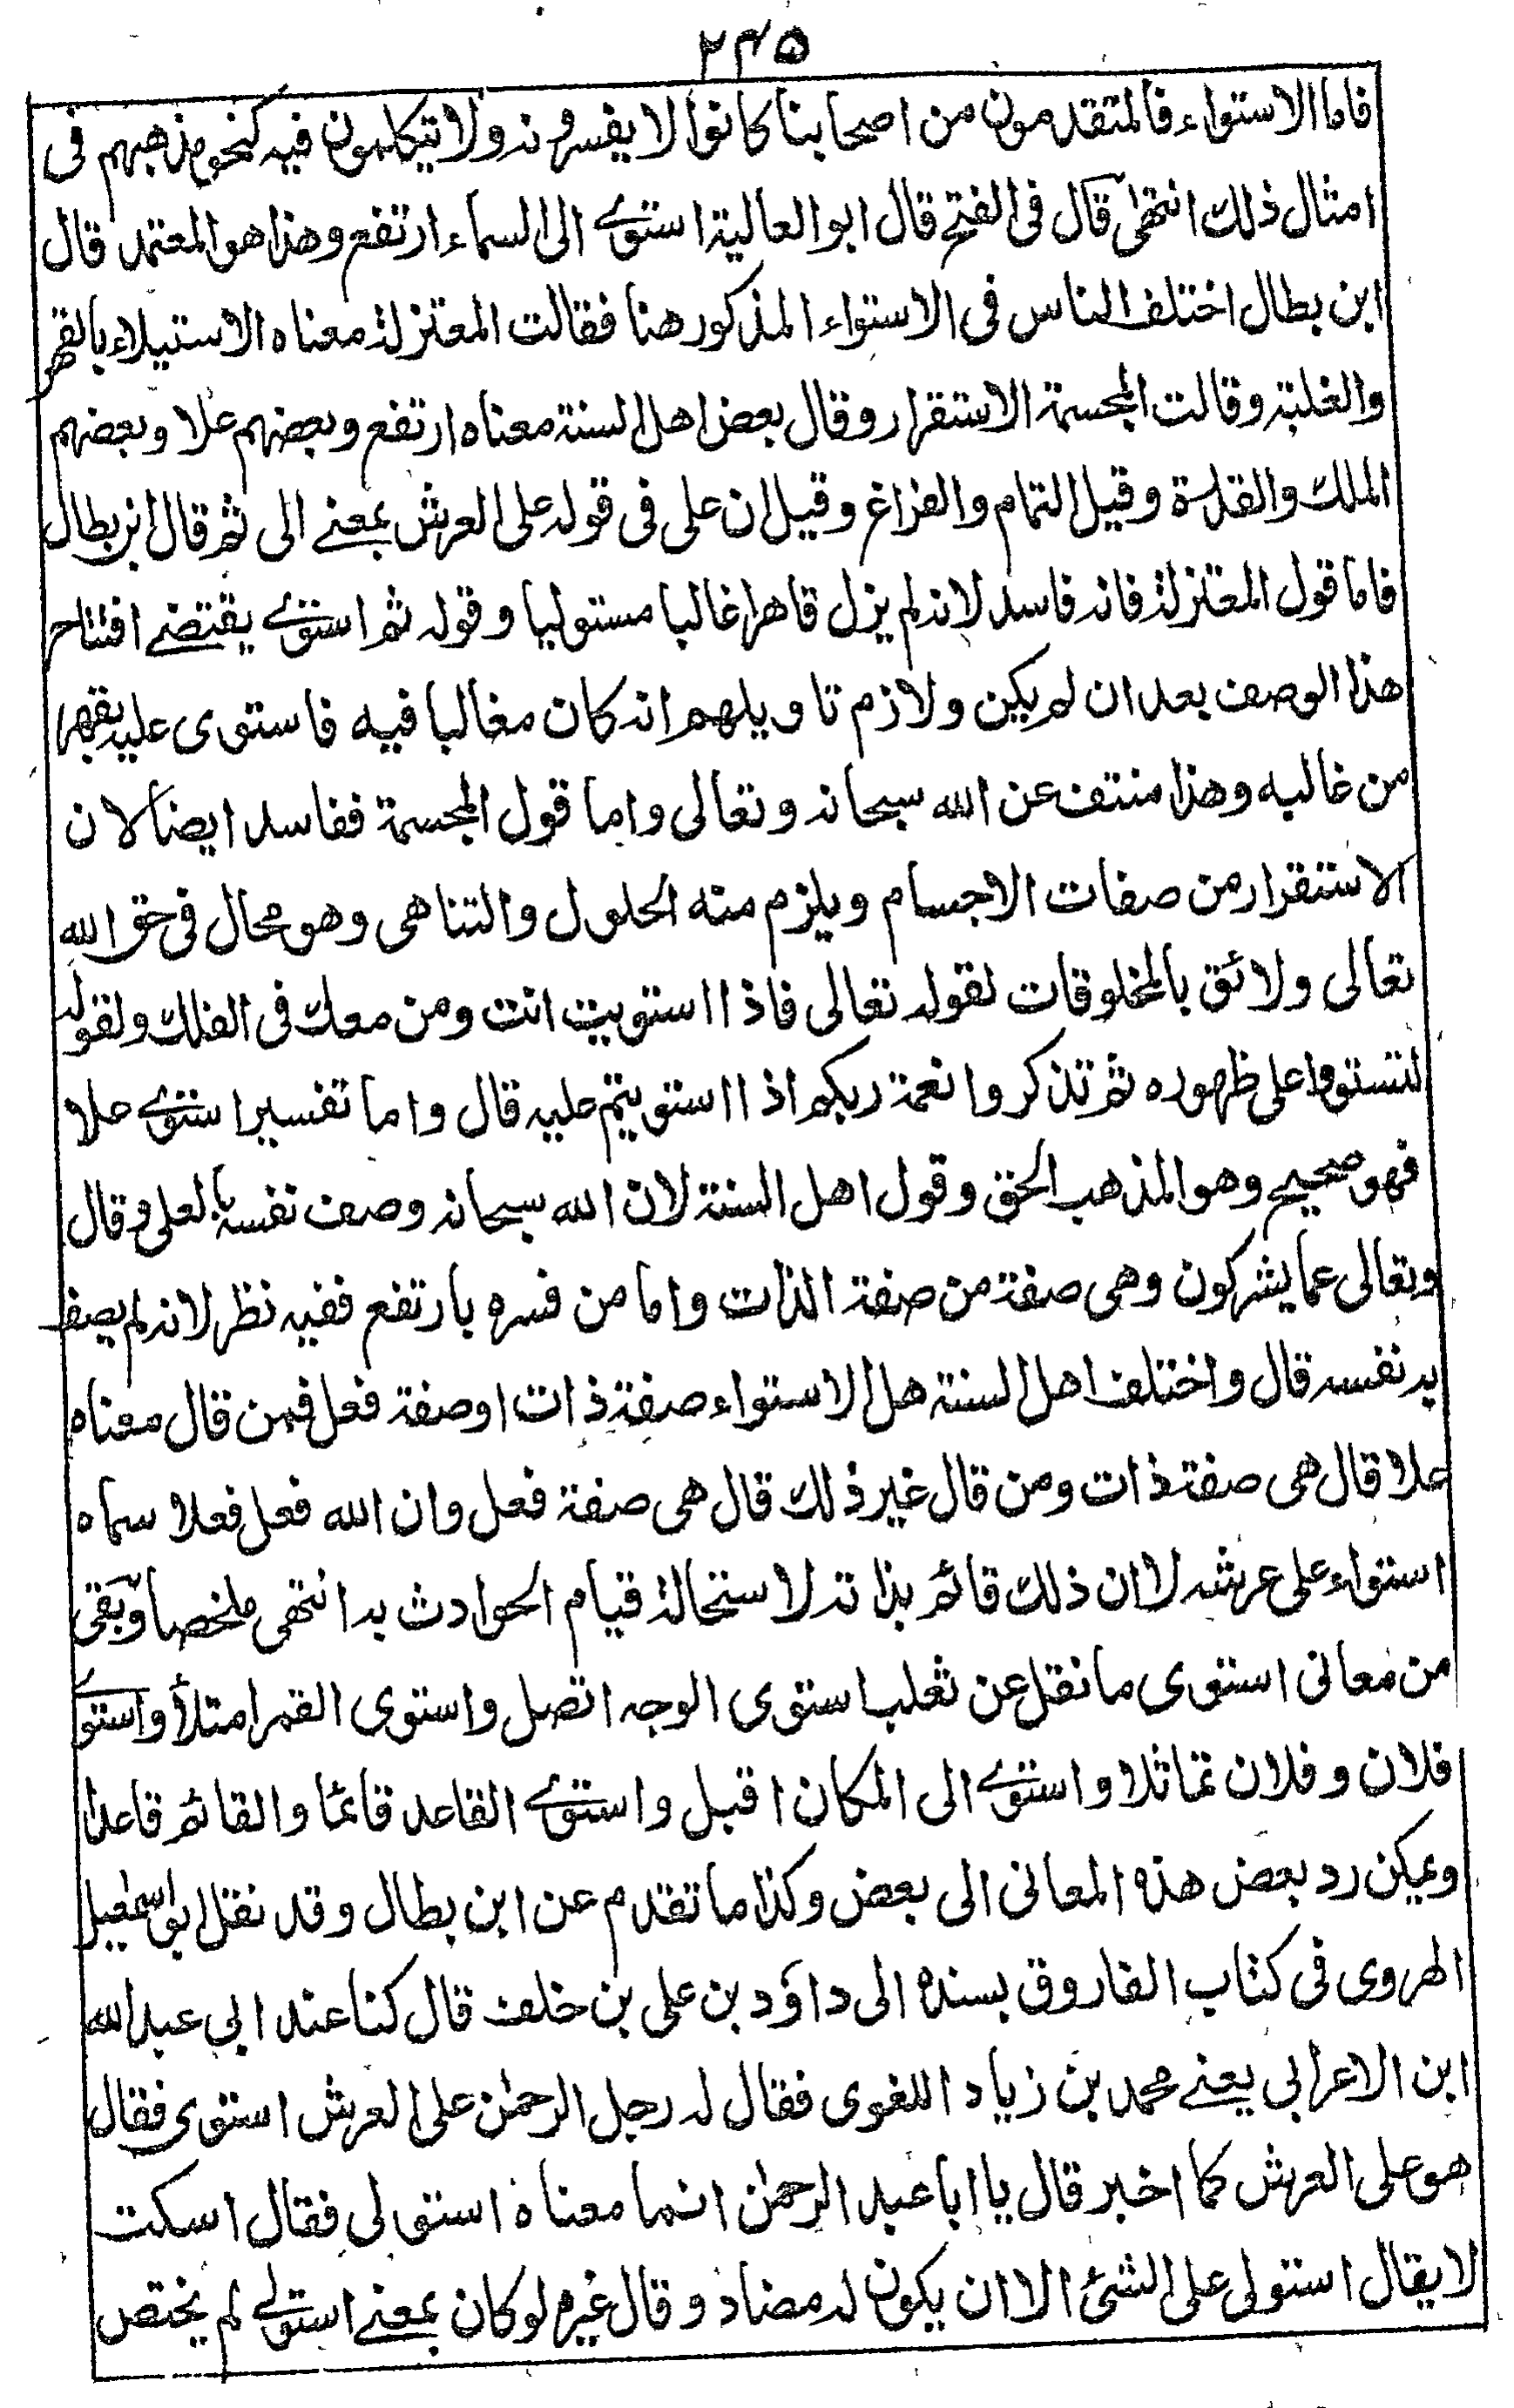 ۲۴۵
فاما الاستواء فالمتقدمون من اصحابنا كانوا لا يفسرونه ولا يتكلمون فيه كنحو مذهبهم في
امثال ذلك انتهى قال في الفتح قال ابو العالية استوے الى السماء ارتفع وهذا هو المعتمد قال
ابن بطال اختلف الناس في الاستواء المذكور هنا فقالت المعتزلة معناه الاستيلاء بالقهر
والغلبة وقالت المجسمة الاستقرار وقال بعض اهل السنة معناه ارتفع وبعضهم علا وبعضهم
الملك والقدرة وقيل التمام والفراغ وقيل ان على في قوله على العرش بمعنے الى ثم قال ابن بطال
فاما قول المعتزلة فانه فاسد لانه لم يزل قاهرا غالبا مستوليا وقوله ثم استوے يقتضے افتتاح
هذا الوصف بعد ان لم يكن ولازم تاويلهم انه كان مغالبا فيه فاستوى عليه بقهر
من غالبه وهذا منتف عن الله سبحانه وتعالى واما قول المجسمة ففاسد ايضا لان
الاستقرار من صفات الاجسام ويلزم منه الحلول والتناهى وهو محال في حق الله
تعالى ولائق بالمخلوقات لقوله تعالى فاذا استويت انت ومن معك في الفلك ولقوله
لتستووا على ظهوره ثم تذكروا نعمة ربكم اذا استويتم عليه قال واما تفسير استوے علا
فهو صحيح وهو المذهب الحق وقول اهل السنة لان الله سبحانه وصف نفسه بالعلى وقال
وتعالى عما يشركون وهى صفة من صفة الذات واما من فسره بارتفع ففيه نظر لانه لم يصف
به نفسه قال واختلف اهل السنة هل الاستواء صفة ذات او صفة فعل فمن قال معناه
علا قال هى صفة ذات ومن قال غير ذلك قال هى صفة فعل وان الله فعل فعلا سماه
استواء على عرشه لا ان ذلك قائم بذاته لاستحالة قيام الحوادث به انتهى ملخصا وبقى
من معانى استوى ما نقل عن ثعلب استوى الوجه اتصل واستوى القمر امتلأ واستوے
فلان وفلان تماثلا واستوے الى المكان اقبل واستوے القاعد قائما والقائم قاعدا
ويمكن رد بعض هذه المعانى الى بعض وكذا ما تقدم عن ابن بطال وقد نقل ابو اسمعيل
الهروى في كتاب الفاروق بسنده الى داؤد بن على بن خلف قال كنا عند ابى عبد الله
ابن الاعرابى يعنے محمد بن زياد اللغوى فقال له رجل الرحمٰن على العرش استوى فقال
هو على العرش كما اخبر قال يا ابا عبد الرحمٰن انما معناه استولى فقال اسكت
لا يقال استولى على الشئ الا ان يكون له مضاد وقال غيره لو كان بمعنے استولے لم يختص